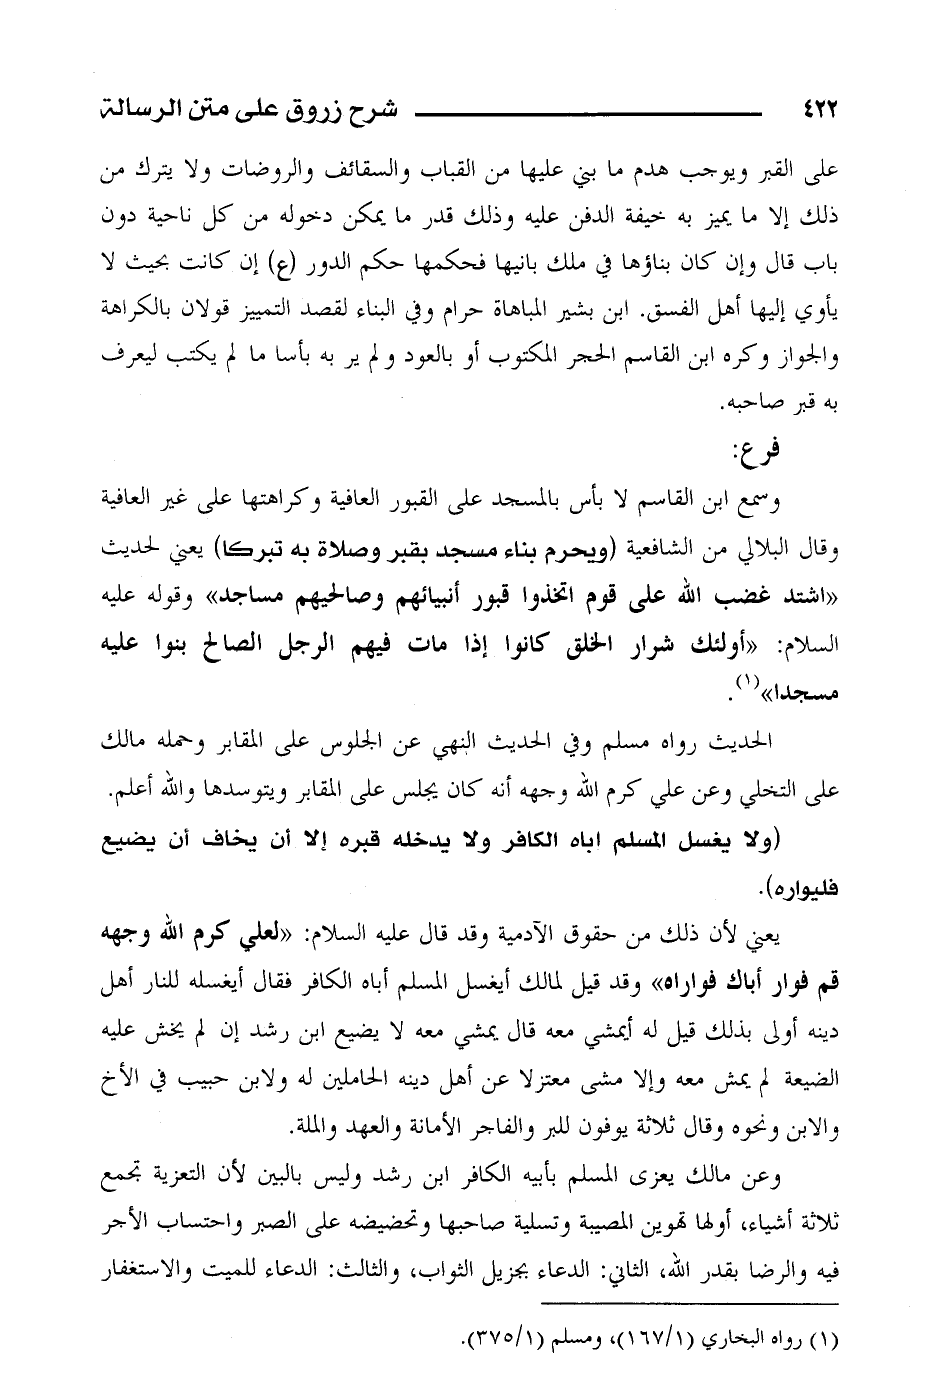 ٤٢٢ شرح زروق على متن الرسالة
على القبر ويوجب هدم ما بني عليها من القباب والسقائف والروضات ولا يترك من
ذلك إلا ما يميز به خيفة الدفن عليه وذلك قدر ما يمكن دخوله من كل ناحية دون
باب قال وإن كان بناؤها في ملك بانيها فحكمها حكم الدور (ع) إن كانت بحيث لا
يأوي إليها أهل الفسق. ابن بشير المباهاة حرام وفي البناء لقصد التمييز قولان بالكراهة
والجواز وكره ابن القاسم الحجر المكتوب أو بالعود ولم ير به بأسا ما لم يكتب ليعرف
به قبر صاحبه.
فرع:
وسمع ابن القاسم لا بأس بالمسجد على القبور العافية وكراهتها على غير العافية
وقال البلالي من الشافعية (ويحرم بناء مسجد بقبر وصلاة به تبركا) يعني لحديث
«اشتد غضب الله على قوم اتخذوا قبور أنبيائهم وصالحيهم مساجد» وقوله عليه
السلام: «أولئك شرار الخلق كانوا إذا مات فيهم الرجل الصالح بنوا عليه
مسجدا»(١).
الحديث رواه مسلم وفي الحديث النهي عن الجلوس على المقابر وحمله مالك
على التخلي وعن علي كرم الله وجهه أنه كان يجلس على المقابر ويتوسدها والله أعلم.
(ولا يغسل المسلم اباه الكافر ولا يدخله قبره إلا أن يخاف أن يضيع
فليواره).
يعني لأن ذلك من حقوق الآدمية وقد قال عليه السلام: «لعلي كرم الله وجهه
قم فوار أباك فواراه» وقد قيل لمالك أيغسل المسلم أباه الكافر فقال أيغسله للنار أهل
دينه أولى بذلك قيل له أيمشي معه قال يمشي معه لا يضيع ابن رشد إن لم يخش عليه
الضيعة لم يمش معه وإلا مشى معتزلا عن أهل دينه الحاملين له ولابن حبيب في الأخ
والابن ونحوه وقال ثلاثة يوفون للبر والفاجر الأمانة والعهد والملة.
وعن مالك يعزى المسلم بأبيه الكافر ابن رشد وليس بالبين لأن التعزية تجمع
ثلاثة أشياء، أولها تهوين المصيبة وتسلية صاحبها وتحضيضه على الصبر واحتساب الأجر
فيه والرضا بقدر الله، الثاني: الدعاء بجزيل الثواب، والثالث: الدعاء للميت والاستغفار
(١) رواه البخاري (١٦٧/١)، ومسلم (٣٧٥/١).